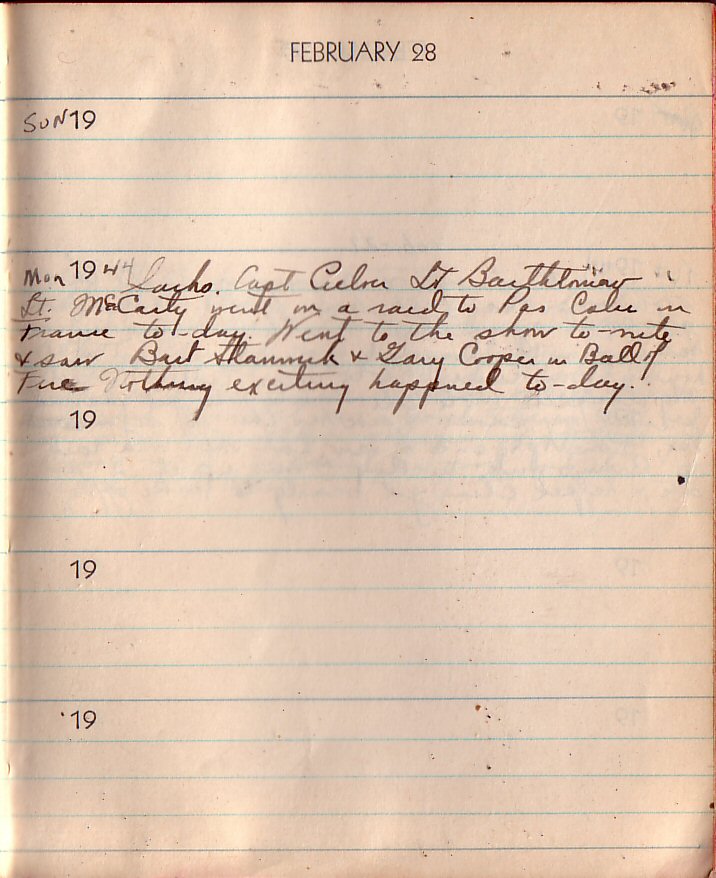 FEBRUARY 28
SUN 19
Mon 1944 Sacks. Capt Culver Lt Barthlomew
Lt. McCarty went on a raid to Pas Calu in
France to-day. Went to the show to-nite
& saw Barb Stanwick & Gary Cooper in Ball of
Fire Nothing exciting happened to-day.
19
19
19